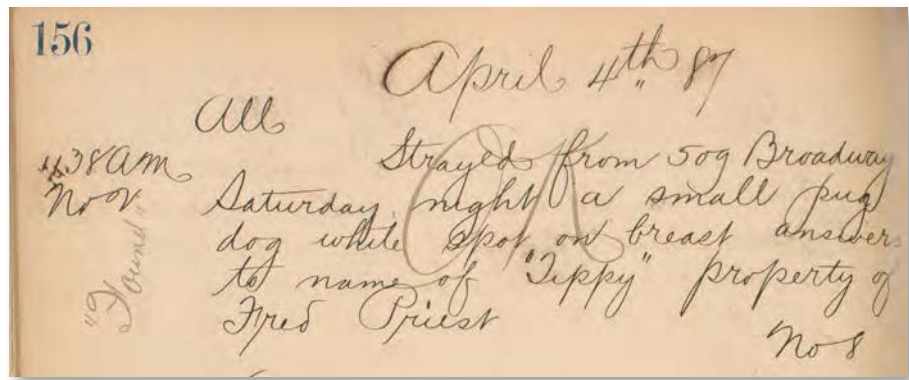 156
April 4th 87
All
38 am
No 2
Strayed from 509 Broadway
Saturday night a small pug
dog white spot on breast answers
to name of "Tippy" property of
Fred Priest
No 8
"Found"